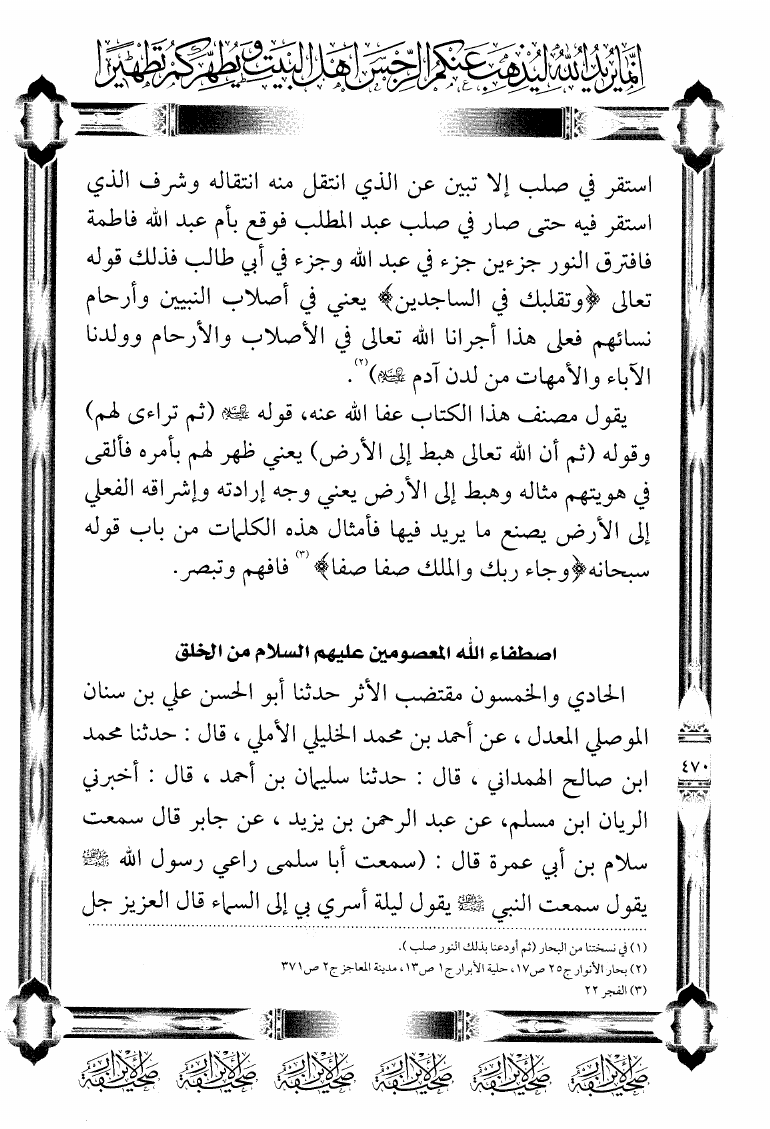 انما يريد الله ليذهب عنكم الرجس اهل البيت و يطهركم تطهيرا
استقر في صلب إلا تبين عن الذي انتقل منه انتقاله وشرف الذي
استقر فيه حتى صار في صلب عبد المطلب فوقع بأم عبد الله فاطمة
فافترق النور جزءين جزء في عبد الله وجزء في أبي طالب فذلك قوله
تعالى ﴿وتقلبك في الساجدين﴾ يعني في أصلاب النبيين وأرحام
نسائهم فعلى هذا أجرانا الله تعالى في الأصلاب والأرحام وولدنا
الآباء والأمهات من لدن آدم عليه السلام)(٢).
يقول مصنف هذا الكتاب عفا الله عنه، قوله عليه السلام (ثم تراءى لهم)
وقوله (ثم أن الله تعالى هبط إلى الأرض) يعني ظهر لهم بأمره فألقى
في هويتهم مثاله وهبط إلى الأرض يعني وجه إرادته وإشراقه الفعلي
إلى الأرض يصنع ما يريد فيها فأمثال هذه الكلمات من باب قوله
سبحانه﴿وجاء ربك والملك صفا صفا﴾(٣) فافهم وتبصر.
اصطفاء الله المعصومين عليهم السلام من الخلق
الحادي والخمسون مقتضب الأثر حدثنا أبو الحسن علي بن سنان
الموصلي المعدل ، عن أحمد بن محمد الخليلي الأملي ، قال : حدثنا محمد
ابن صالح الهمداني ، قال : حدثنا سليمان بن أحمد ، قال : أخبرني
الريان ابن مسلم، عن عبد الرحمن بن يزيد ، عن جابر قال سمعت
سلام بن أبي عمرة قال : (سمعت أبا سلمى راعي رسول الله ﷺ
يقول سمعت النبي ﷺ يقول ليلة أسري بي إلى السماء قال العزيز جل
٤٧٠
(١) في نسختنا من البحار (ثم أودعنا بذلك النور صلب ).
(٢) بحار الأنوار ج٢٥ ص١٧، حلية الأبرار ج١ ص١٣، مدينة المعاجز ج٢ ص٣٧١
(٣) الفجر ٢٢
صحيفة الأبرار صحيفة الأبرار صحيفة الأبرار صحيفة الأبرار صحيفة الأبرار صحيفة الأبرار